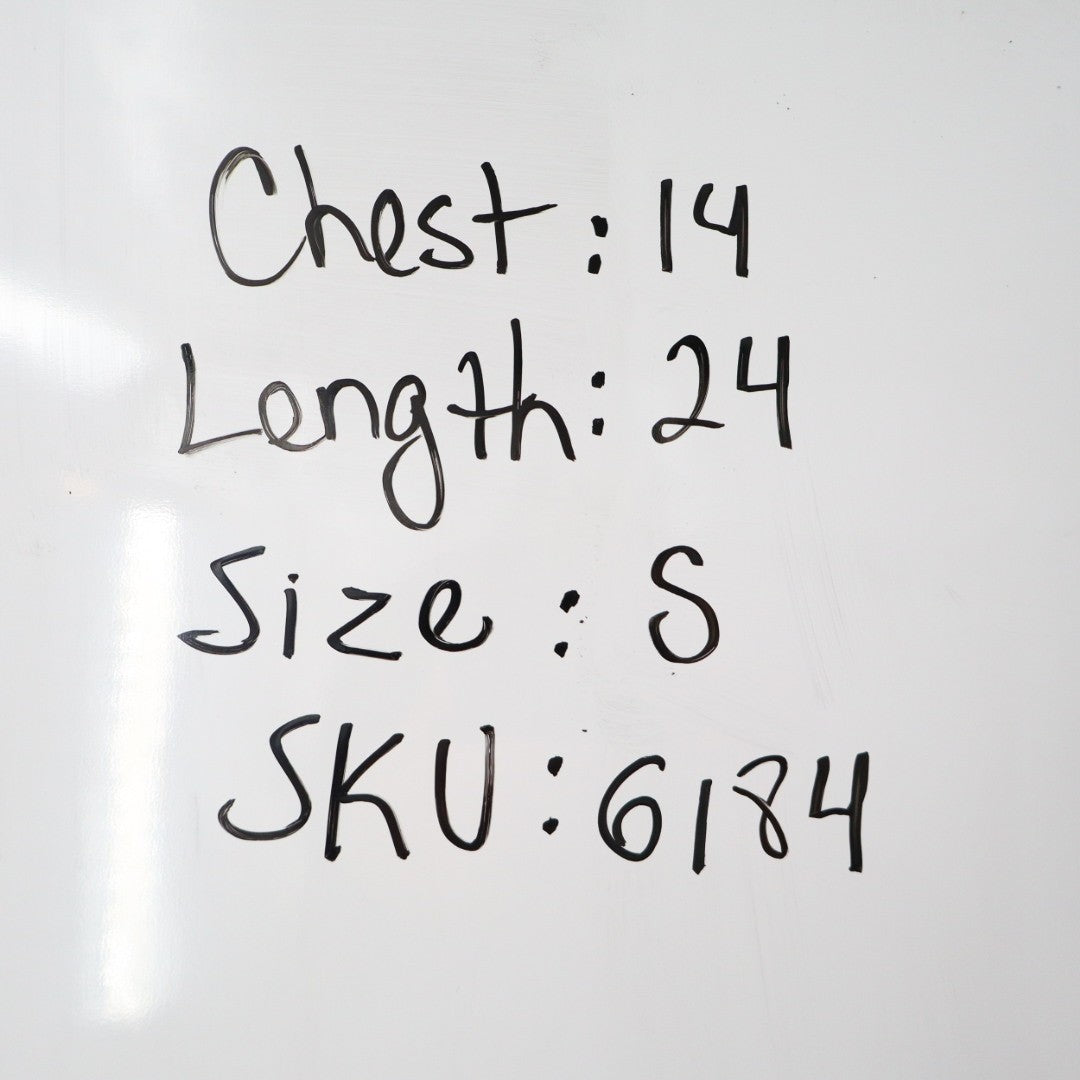 Chest: 14
Length: 24
Size: S
SKU: 6184